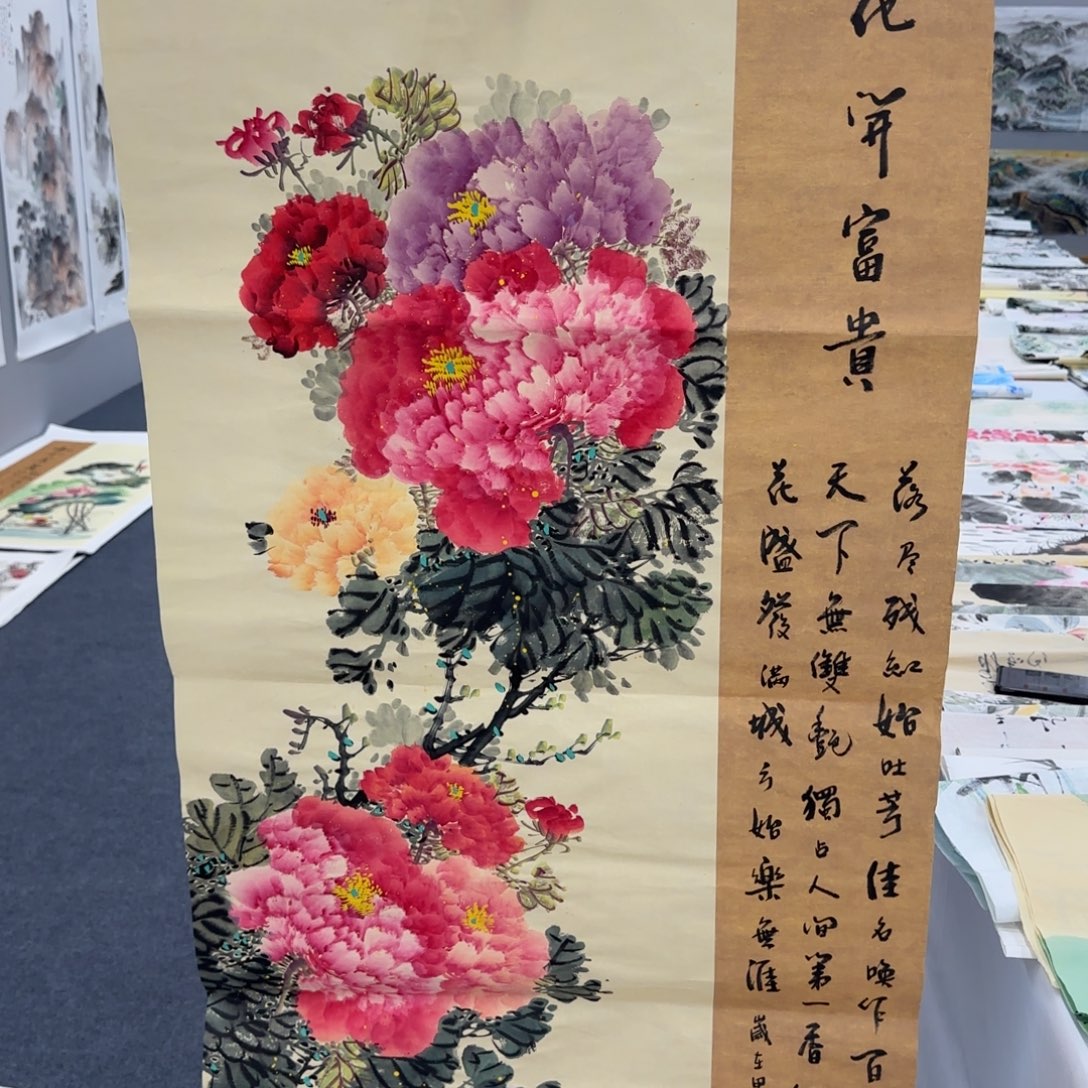 花開富貴
落尽残紅始吐芳佳名喚作百
天下無雙艷獨占人间第一香
花盛發滿城始樂無涯歲在